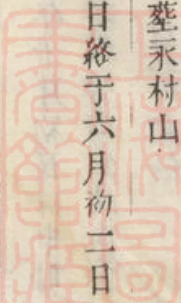 塟永村山
日終于六月初二日